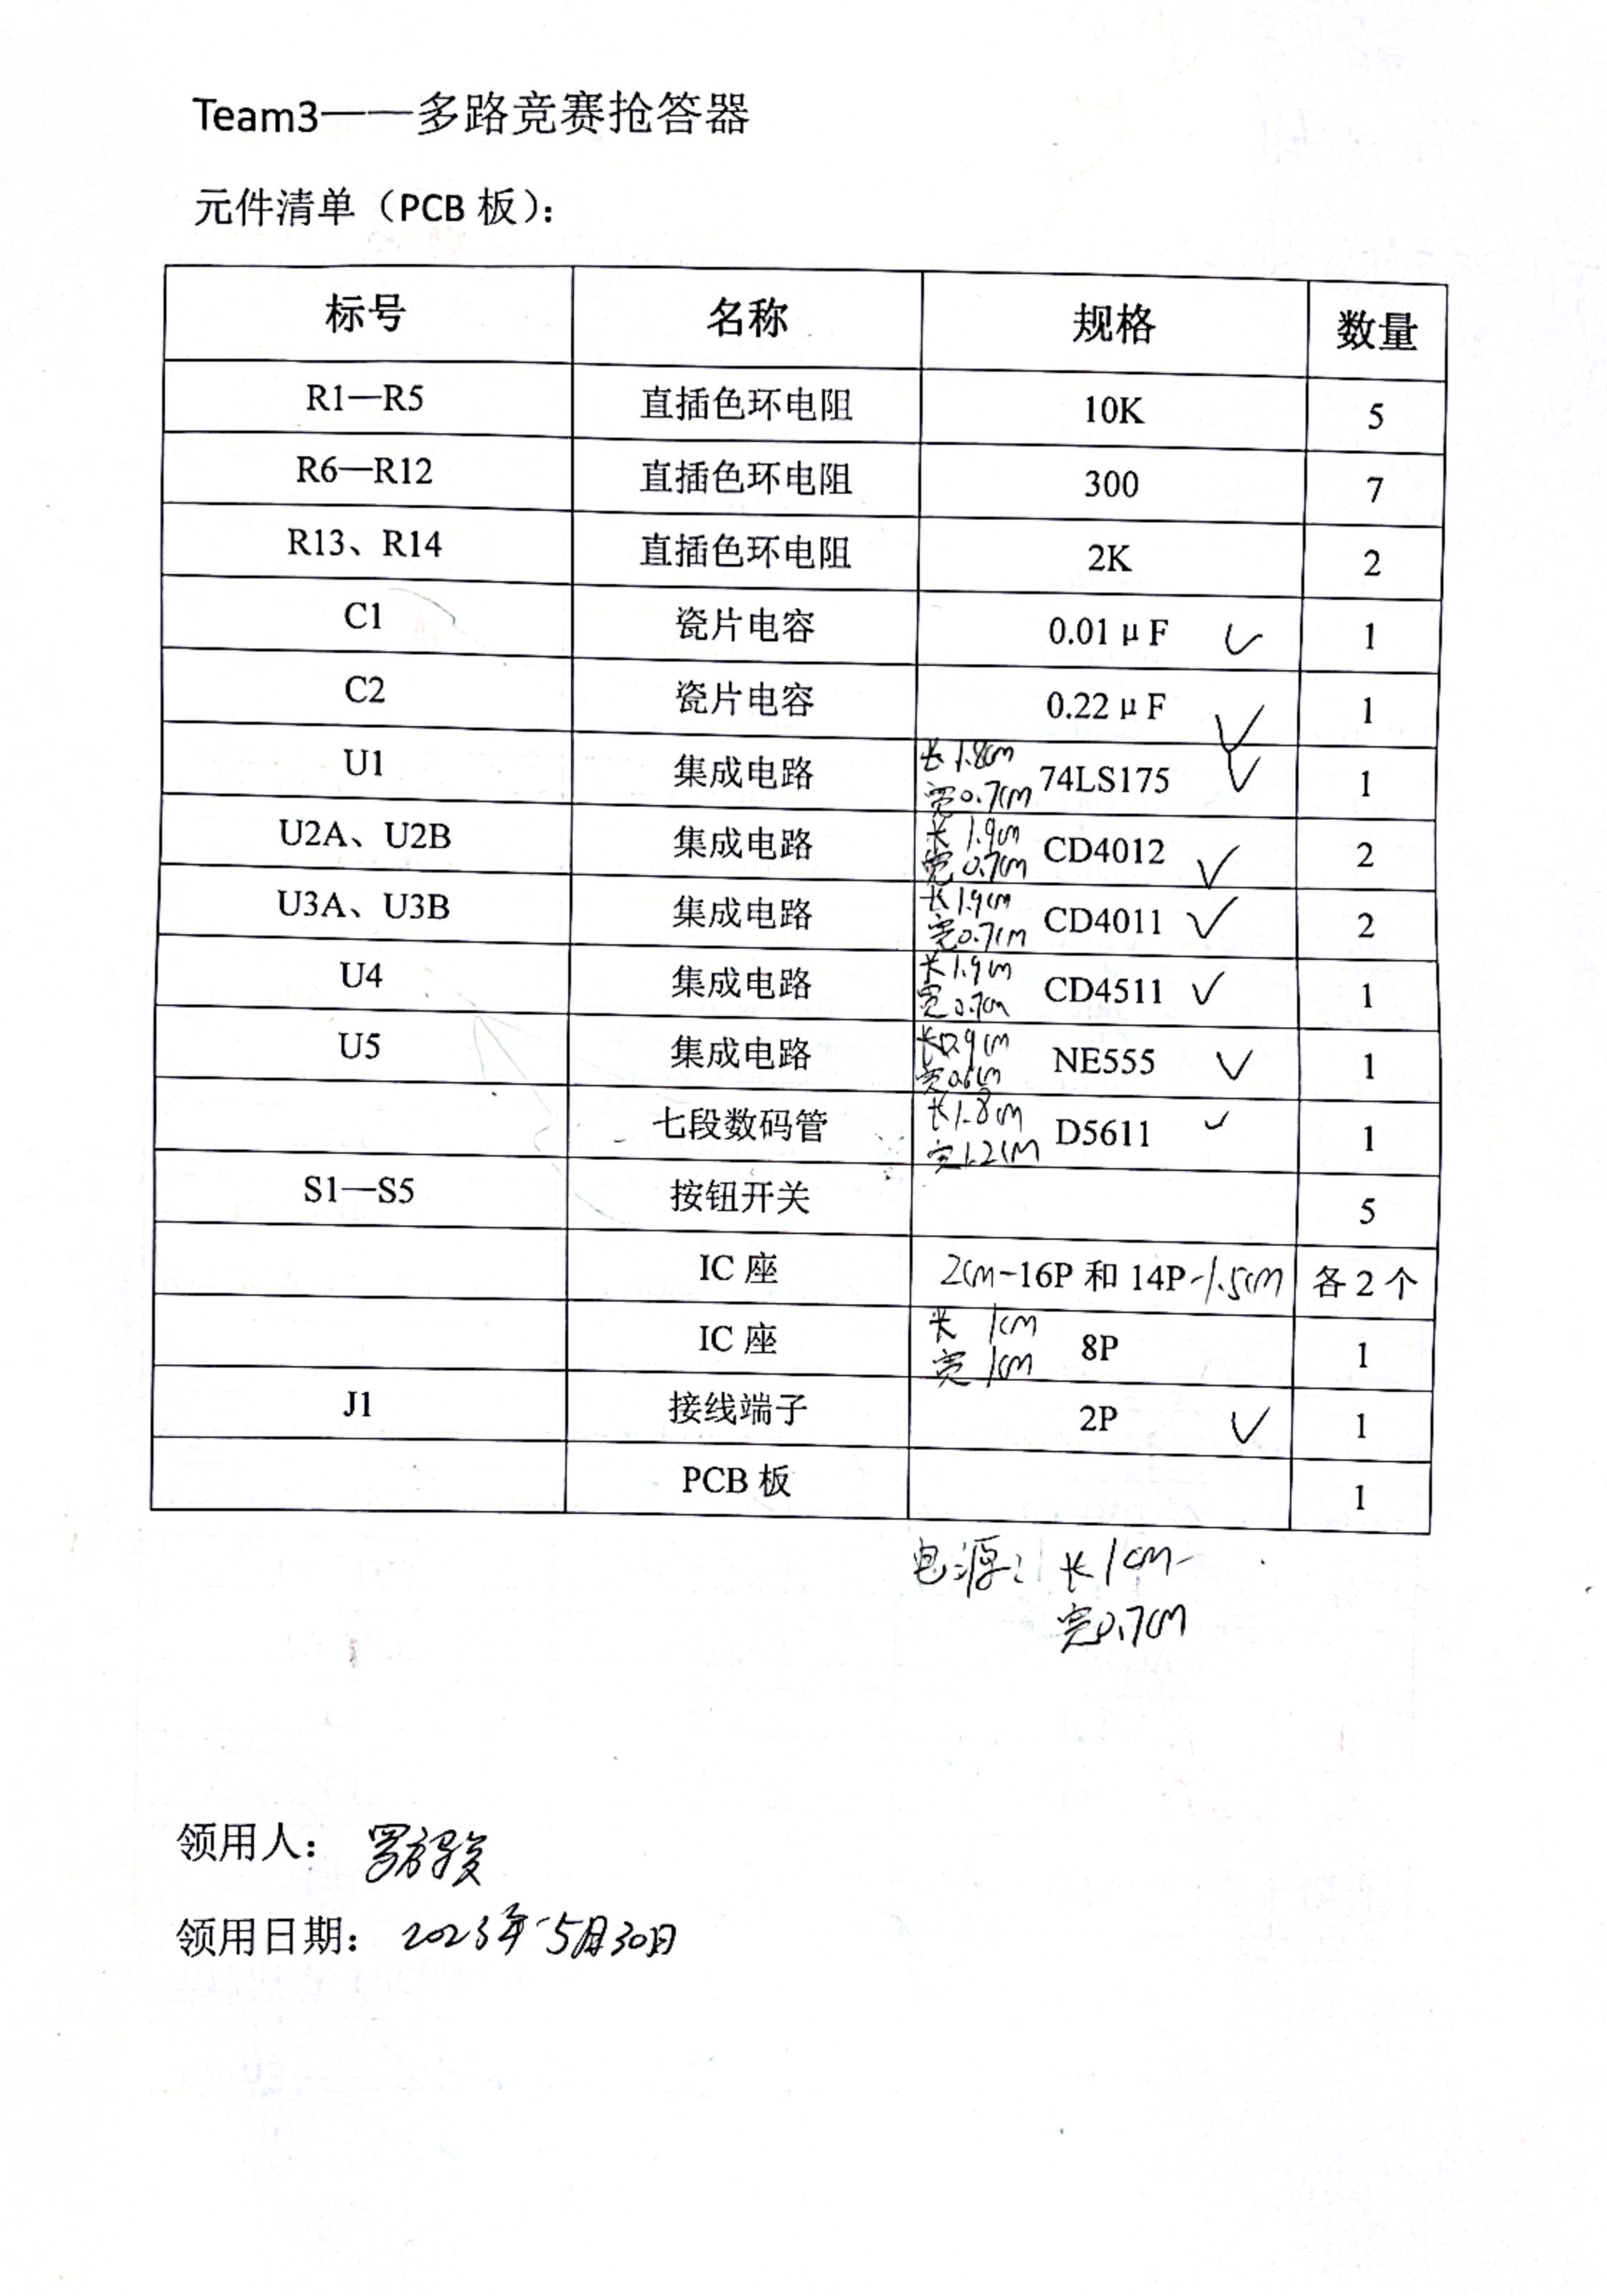 Team3——多路竞赛抢答器
元件清单（PCB 板）：
标号 名称 规格 数量
R1—R5 直插色环电阻 10K 5
R6—R12 直插色环电阻 300 7
R13、R14 直插色环电阻 2K 2
C1 瓷片电容 0.01 μF ✓ 1
C2 瓷片电容 0.22 μF ✓ 1
U1 集成电路 长1.8cm 宽0.7cm 74LS175 ✓ 1
U2A、U2B 集成电路 长1.9cm 宽0.7cm CD4012 ✓ 2
U3A、U3B 集成电路 长1.9cm 宽0.7cm CD4011 ✓ 2
U4 集成电路 长1.9cm 宽0.7cm CD4511 ✓ 1
U5 集成电路 长0.9cm 宽0.6cm NE555 ✓ 1
七段数码管 长1.8cm 宽1.2cm D5611 ✓ 1
S1—S5 按钮开关 5
IC 座 2cm-16P 和 14P-1.5cm 各 2 个
IC 座 长 1cm 宽 1cm 8P 1
J1 接线端子 2P ✓ 1
PCB 板 1
电源： 长1cm
宽0.7cm
领用人： 罗方骏
领用日期： 2023年5月30日